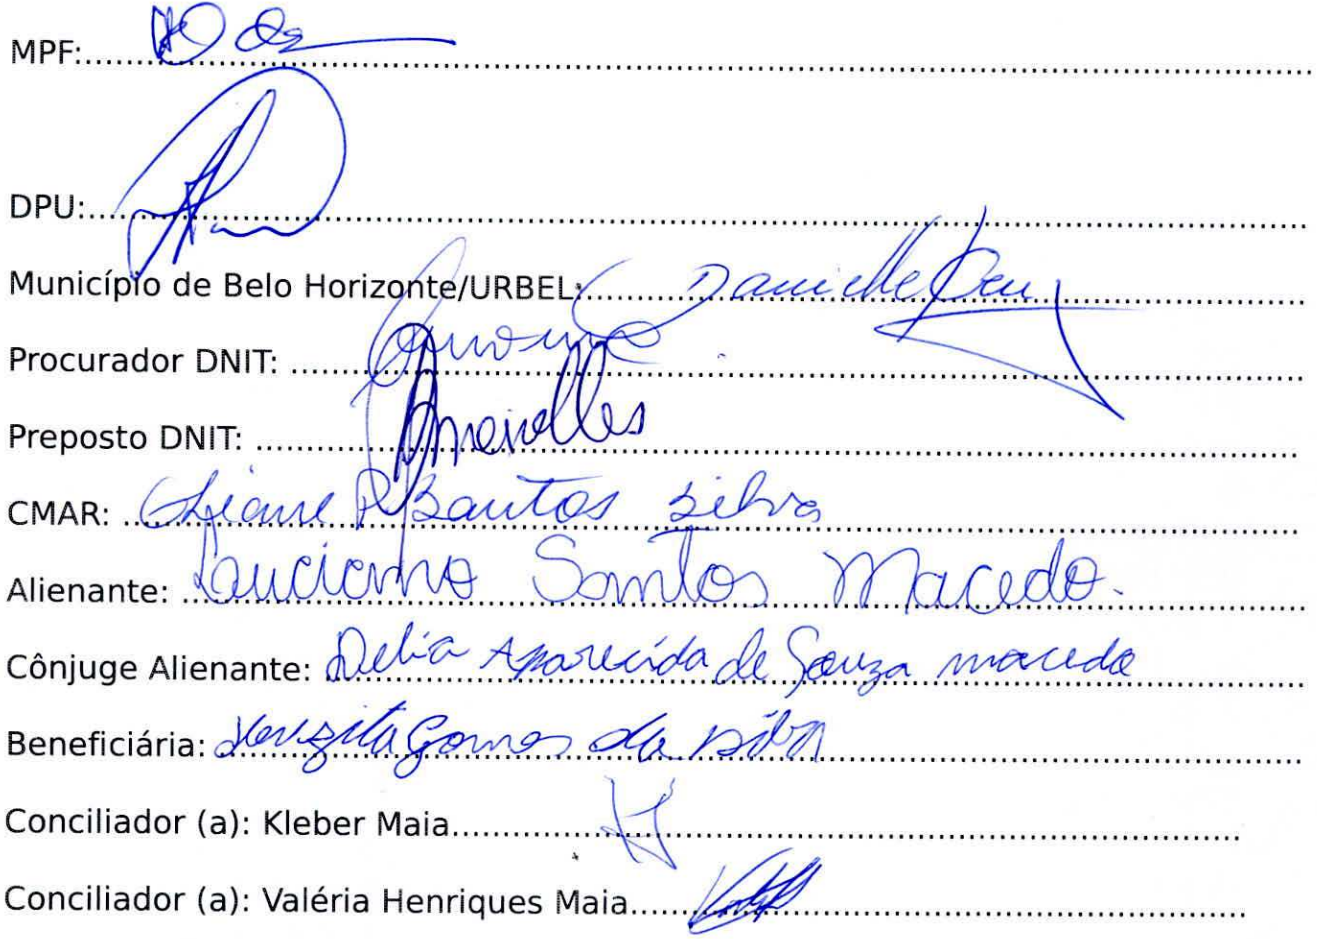 MPF:
DPU:
Município de Belo Horizonte/URBEL: Danielle
Procurador DNIT:
Preposto DNIT: Meirelles
CMAR: Santos Silva
Alienante: Luciano Santos Macedo.
Cônjuge Alienante: Délia Aparecida de Souza macedo
Beneficiária: Gomes da Silva
Conciliador (a): Kleber Maia
Conciliador (a): Valéria Henriques Maia